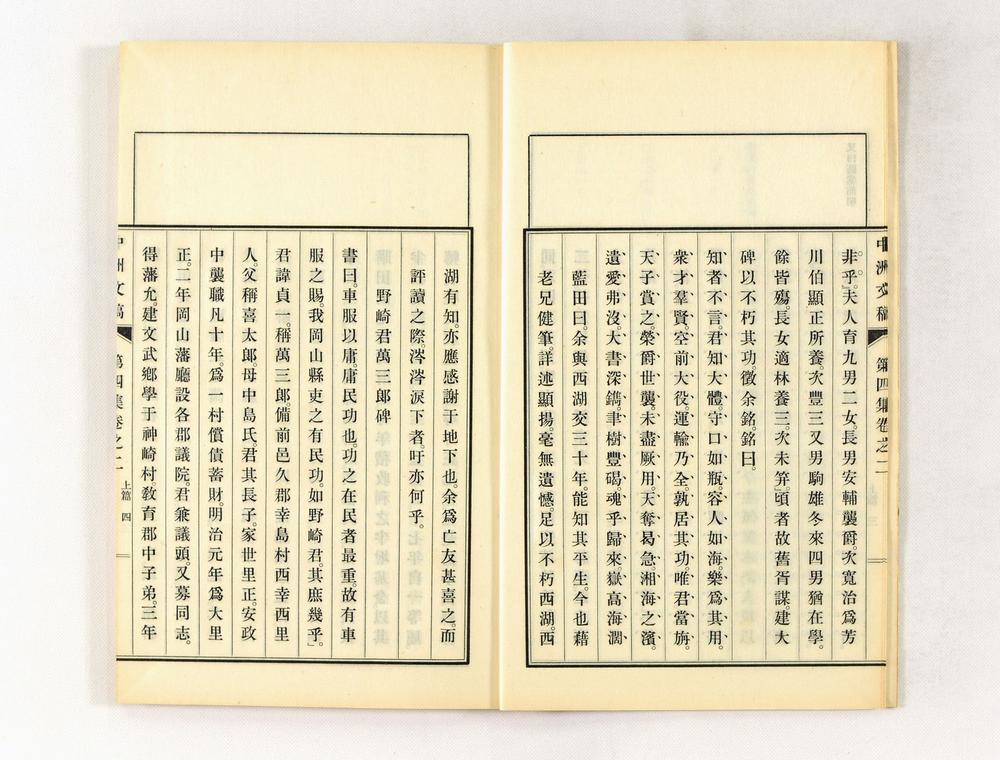 中洲文稿 第四集卷之二
非乎。』夫人育九男二女。長男安輔襲爵。次寬治爲芳
川伯顯正所養。次豐三又男駒雄冬來四男猶在學。
餘皆殤。長女適林養三。次未笄。』頃者故舊胥謀。建大
碑以不朽其功。徵余銘。銘曰。
知者不言。君知大體。守口如瓶。容人如海。樂爲其用。
衆才羣賢。空前大役。運輸乃全。孰居其功。唯君當旃。
天子賞之。榮爵世襲。未盡厥用。天奪曷急。湘海之濱。
遺愛弗沒。大書深鐫。聿樹豐碣。魂乎歸來。嶽高海濶
藍田曰。余與西湖交三十年。能知其平生。今也藉
老兄健筆。詳述顯揚。毫無遺憾。足以不朽西湖。西
湖有知。亦應感謝于地下也。余爲亡友甚喜之。而
評讀之際。涔涔淚下者。吁亦何乎。
野崎君萬三郎碑
書曰。車服以庸。庸民功也。功之在民者最重。故有車
服之賜。我岡山縣吏之有民功。如野崎君。其庶幾乎。』
君諱貞一。稱萬三郎。備前邑久郡幸島村西幸西里
人。父稱喜太郎。母中島氏。君其長子。家世里正。安政
中襲職凡十年。爲一村償債蓄財。明治元年爲大里
正。二年岡山藩廳設各郡議院。君兼議頭。又募同志。
得藩允。建文武鄉學于神崎村。敎育郡中子弟。三年
中洲文稿 第四集卷之二 上篇 四